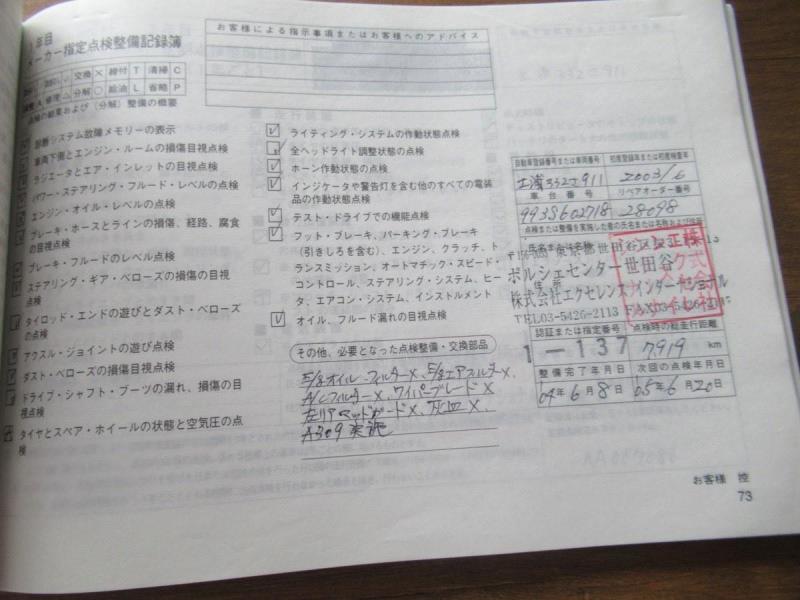 年目
メーカー指定点検整備記録簿
お客様による指示事項またはお客様へのアドバイス
交換 × 締付 T 清掃 C
修理 △ 分解 ○ 給油 L 省略 P
点検の結果および（分解）整備の概要
診断システム故障メモリーの表示
車両下側とエンジン・ルームの損傷目視点検
ラジエータとエア・インレットの目視点検
パワー・ステアリング・フルード・レベルの点検
エンジン・オイル・レベルの点検
ブレーキ・ホースとラインの損傷、経路、腐食
の目視点検
ブレーキ・フルードのレベル点検
ステアリング・ギア・ベローズの損傷の目視
点検
タイロッド・エンドの遊びとダスト・ベローズ
の点検
アクスル・ジョイントの遊び点検
ダスト・ベローズの損傷目視点検
ドライブ・シャフト・ブーツの漏れ、損傷の目
視点検
タイヤとスペア・ホイールの状態と空気圧の点
検
ライティング・システムの作動状態点検
全ヘッドライト調整状態の点検
ホーン作動状態の点検
インジケータや警告灯を含む他のすべての電装
品の作動状態点検
テスト・ドライブでの機能点検
フット・ブレーキ、パーキング・ブレーキ
（引きしろを含む）、エンジン、クラッチ、ト
ランスミッション、オートマチック・スピード・
コントロール、ステアリング・システム、ヒー
タ、エアコン・システム、インストルメント
オイル、フルード漏れの目視点検
その他、必要となった点検整備・交換部品
E/gオイル・フィルター×、E/gエアフィルター×、
A/Cフィルター×、ワイパーブレード×
左リアマッドガード×
A309実施
自動車登録番号または車両番号 初度登録年または初度検査年
土浦332 911 2003/6
車台番号 リペアオーダー番号
993S602718 28098
点検または整備を実施した者の氏名または名称および住所
氏名または名称
東京都世田谷区
ポルシェセンター世田谷
住所
株式会社エクセレンス・インターナショナル
TEL03-5426-2113
認証または指定番号 点検時の総走行距離
1-137 7919 km
整備完了年月日 次回の点検年月日
04年6月8日 05年6月20日
お客様 控
73